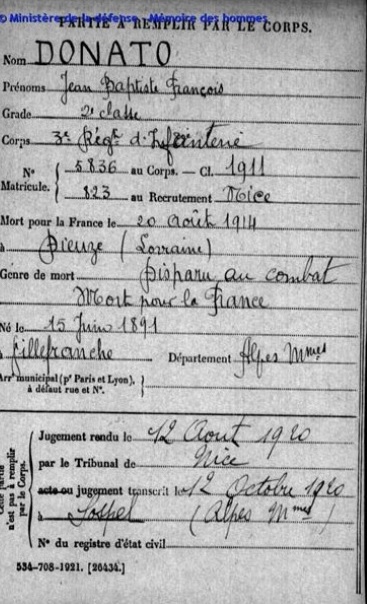 © Ministère de la défense - Mémoire des hommes
PARTIE À REMPLIR PAR LE CORPS.
Nom DONATO
Prénoms Jean Baptiste François
Grade 2e classe
Corps 3e Régt d'Infanterie
N° Matricule. { 5836 au Corps. — Cl. 1911
823 au Recrutement Nice
Mort pour la France le 20 Août 1914
à Dieuze (Lorraine)
Genre de mort Disparu au combat
Mort pour la France
Né le 15 Juin 1891
à Villefranche Département Alpes Mmes
Arrt municipal (pr Paris et Lyon), à défaut rue et N°. }
Cette partie n'est pas à remplir par le Corps.
Jugement rendu le 12 Aout 1920
par le Tribunal de Nice
acte ou jugement transcrit le 12 Octobre 1920
à Sospel (Alpes Mmes)
N° du registre d'état civil
534-708-1921. [26434.]